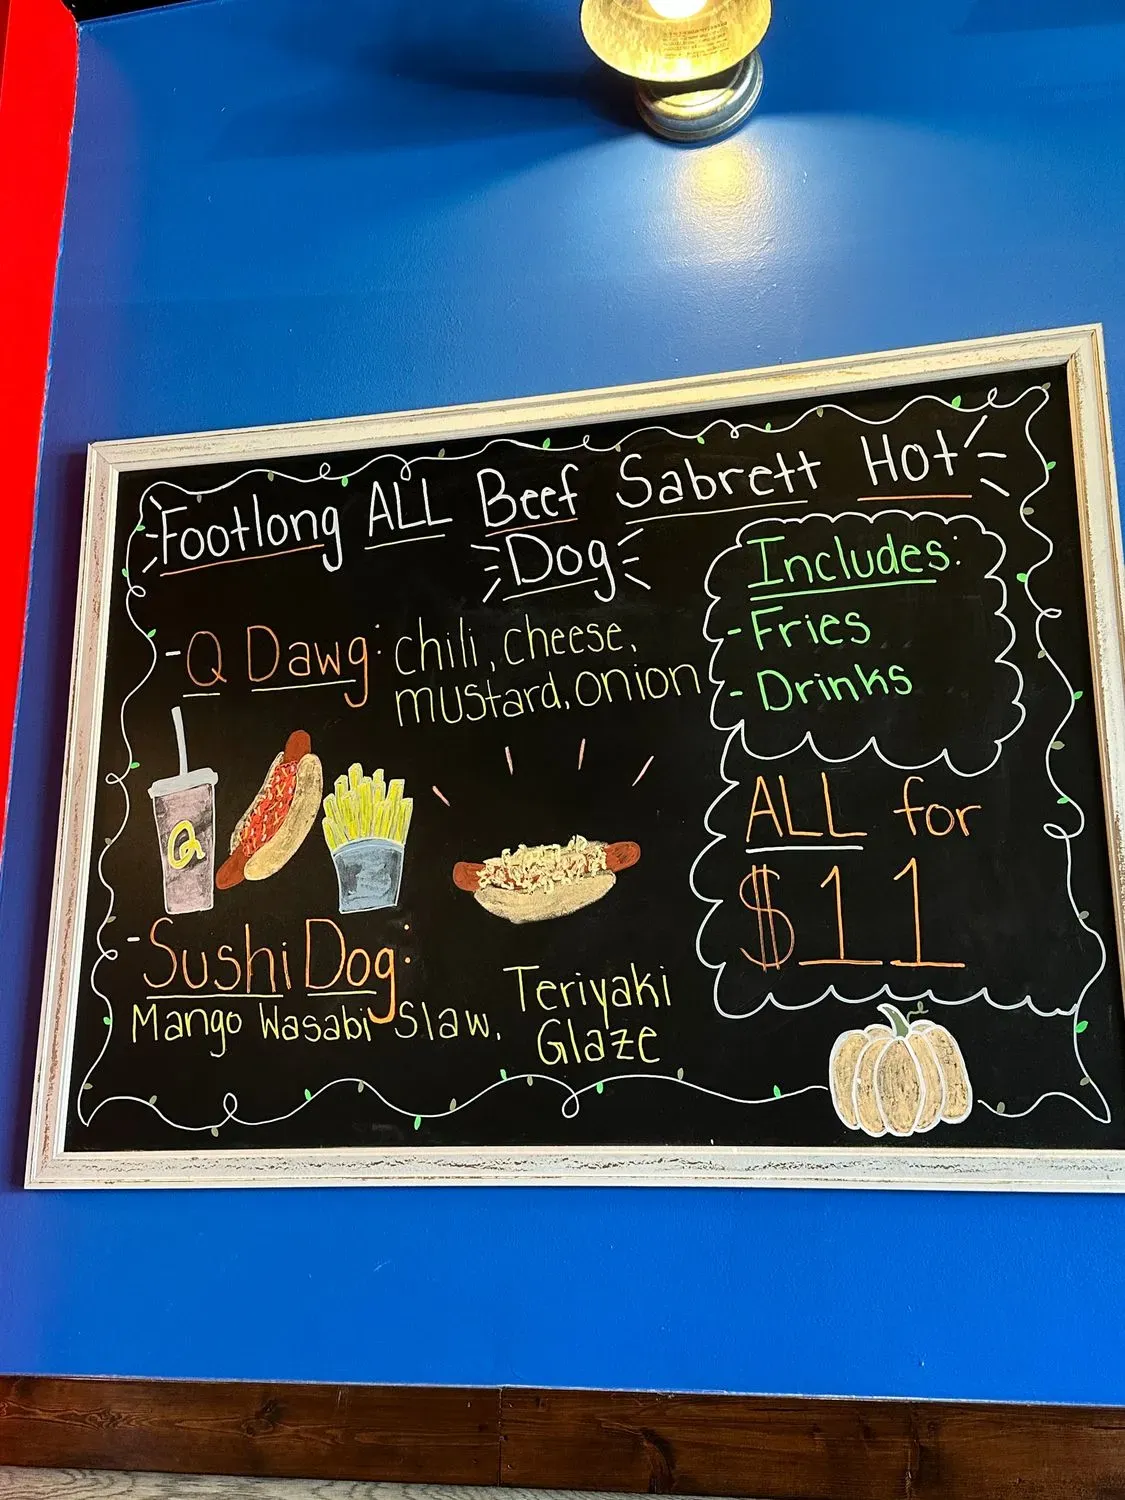 Footlong ALL Beef Sabrett Hot
Dog
- Q Dawg: chili, cheese,
mustard, onion
Includes:
- Fries
- Drinks
ALL for
$11
Q
- Sushi Dog:
Mango Wasabi Slaw,
Teriyaki
Glaze